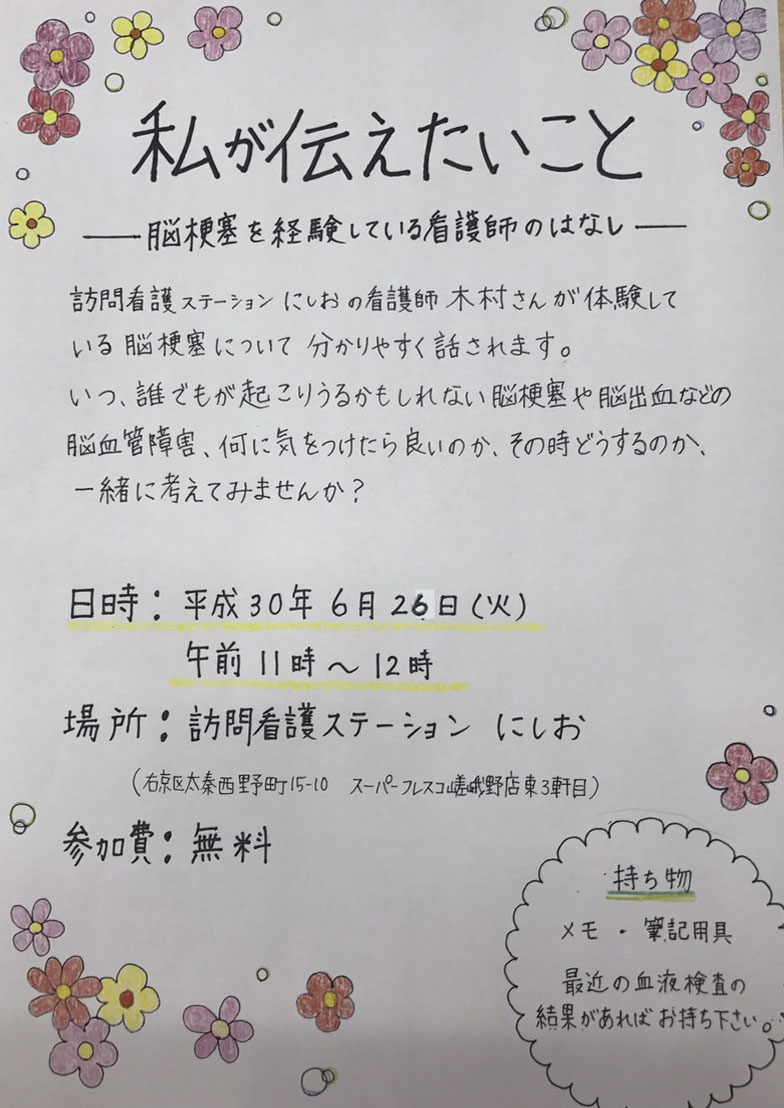 私が伝えたいこと
―― 脳梗塞を経験している看護師のはなし ――
訪問看護ステーションにしおの看護師 木村さんが体験して
いる脳梗塞について 分かりやすく話されます。
いつ、誰でもが起こりうるかもしれない脳梗塞や脳出血などの
脳血管障害、何に気をつけたら良いのか、その時どうするのか、
一緒に考えてみませんか?
日時:平成30年 6月 26日(火)
午前 11時~12時
場所:訪問看護ステーション にしお
(右京区太秦西野町15-10 スーパーフレスコ嵯峨野店東3軒目)
参加費:無料
持ち物
メモ・筆記用具
最近の血液検査の
結果があればお持ち下さい。